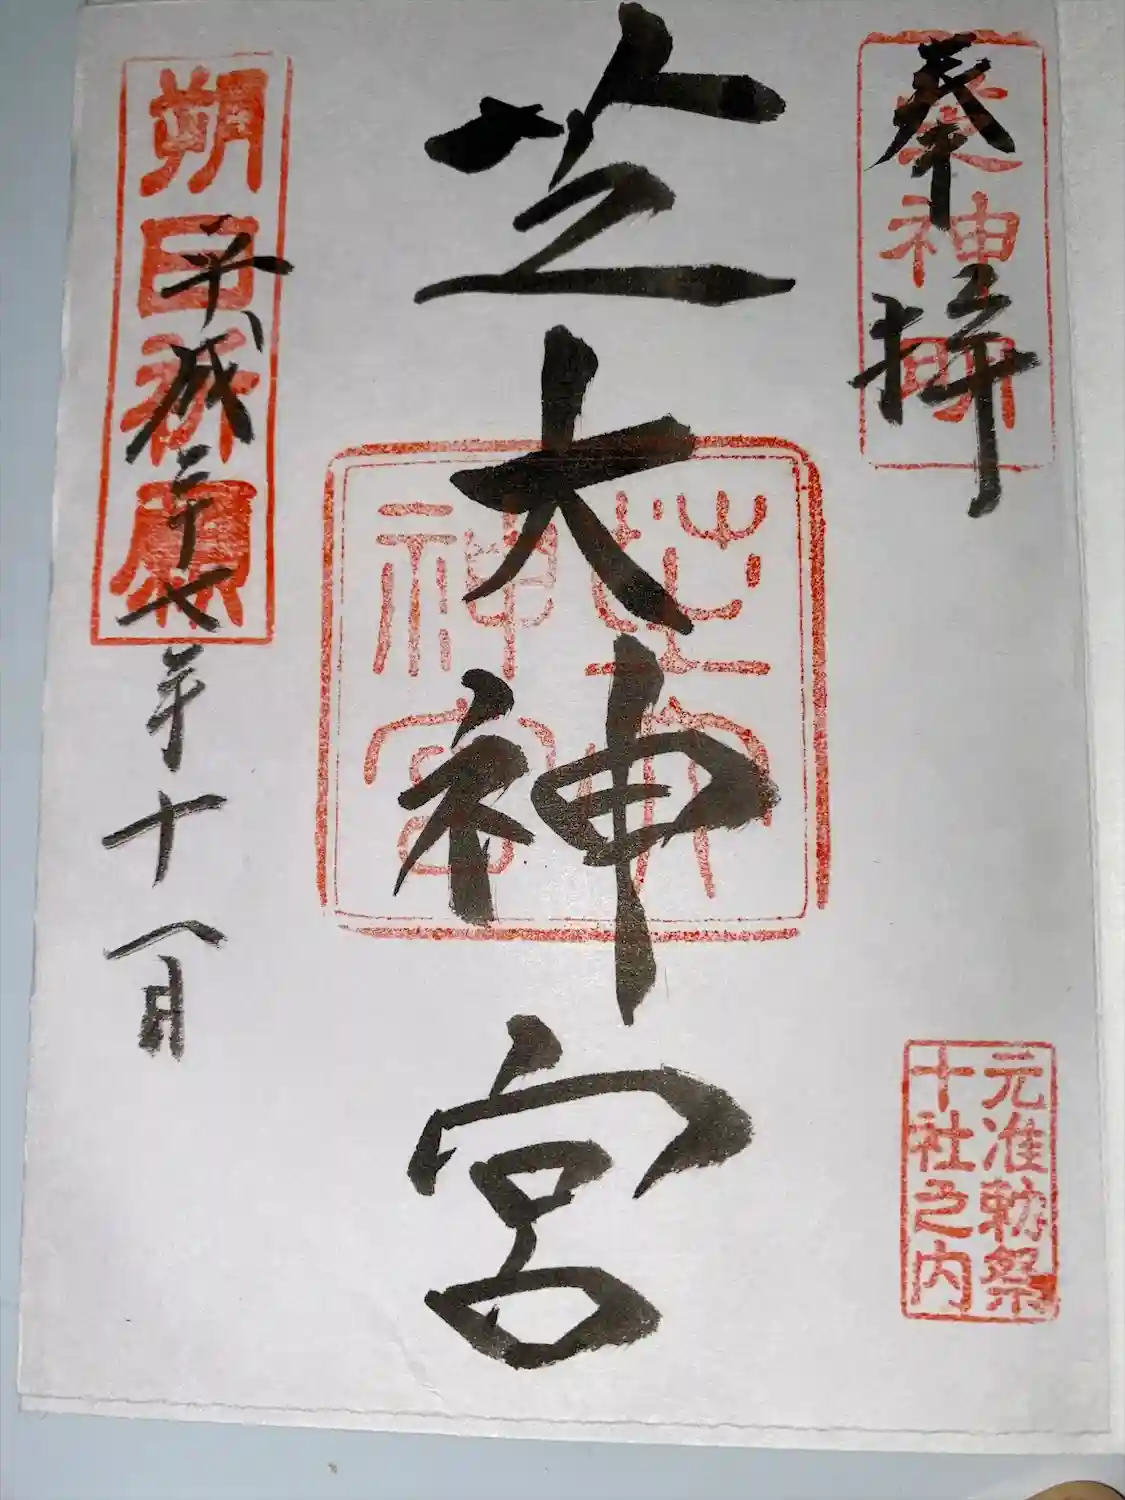 奉拝
神明
元准勅祭
十社之内
芝大神宮
芝大
神宮
朔日祈願
平成二十七年十一月